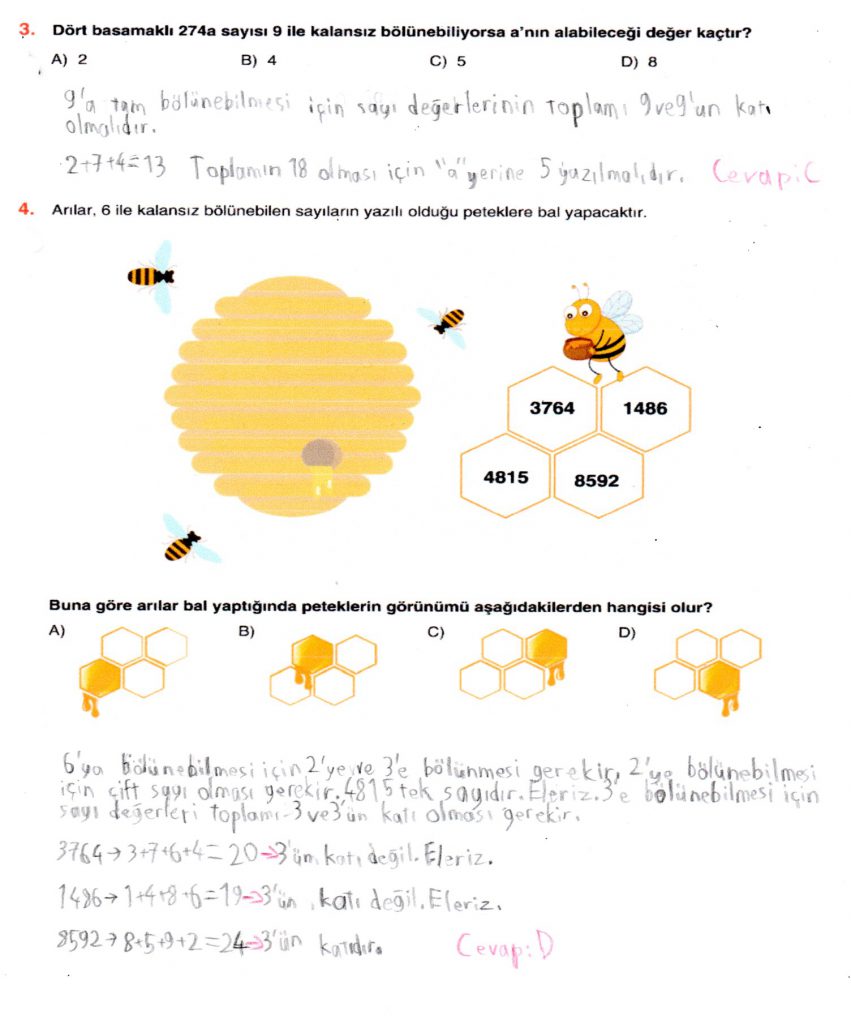 3. Dört basamaklı 274a sayısı 9 ile kalansız bölünebiliyorsa a'nın alabileceği değer kaçtır?
A) 2 B) 4 C) 5 D) 8
9'a tam bölünebilmesi için sayı değerlerinin toplamı 9 ve 9'un katı
olmalıdır.
2+7+4=13 Toplamın 18 olması için "a" yerine 5 yazılmalıdır. Cevap: C
4. Arılar, 6 ile kalansız bölünebilen sayıların yazılı olduğu peteklere bal yapacaktır.
3764 1486
4815 8592
Buna göre arılar bal yaptığında peteklerin görünümü aşağıdakilerden hangisi olur?
A) B) C) D)
6'ya bölünebilmesi için 2'ye ve 3'e bölünmesi gerekir. 2'ye bölünebilmesi
için çift sayı olması gerekir. 4815 tek sayıdır. Eleriz. 3'e bölünebilmesi için
sayı değerleri toplamı 3 ve 3'ün katı olması gerekir.
3764→3+7+6+4=20→3'ün katı değil. Eleriz.
1486→1+4+8+6=19→3'ün katı değil. Eleriz.
8592→8+5+9+2=24→3'ün katıdır. Cevap: D